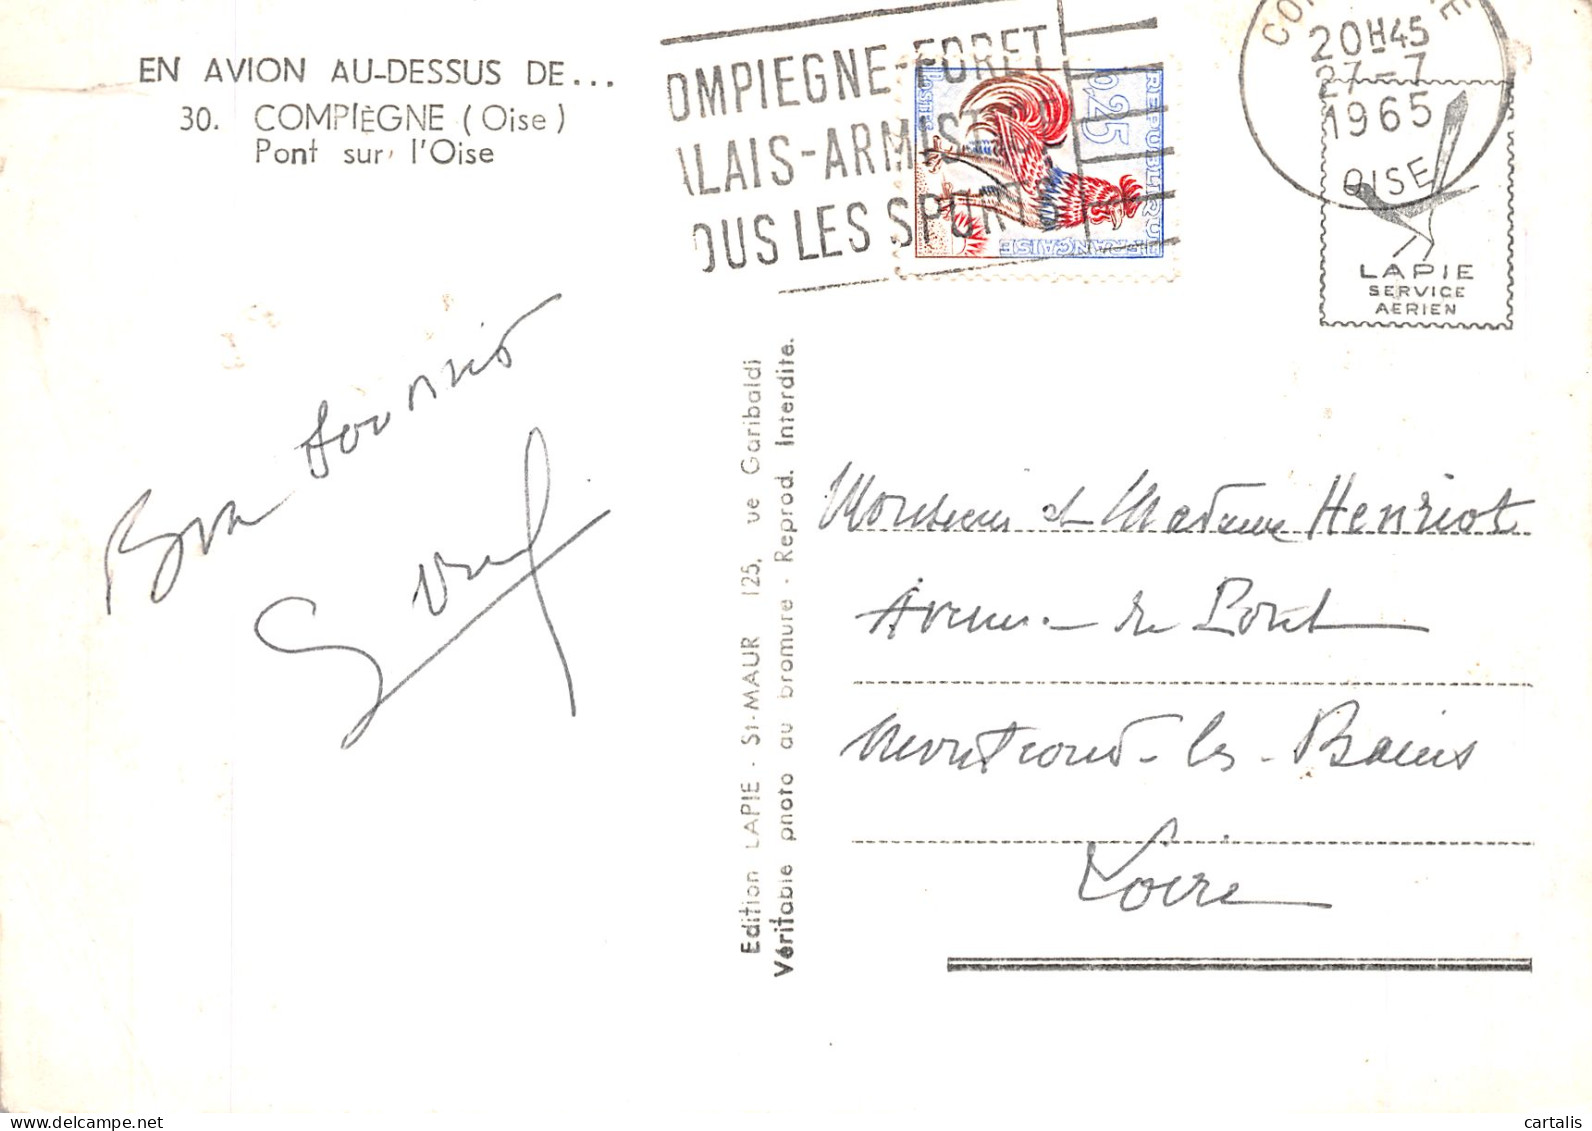 EN AVION AU-DESSUS DE...
30. COMPIÈGNE (Oise)
Pont sur l'Oise
OMPIEGNE-FORET
ALAIS-ARMISTICE
OUS LES SPORTS
REPUBLIQUE
FRANÇAISE
0,25
POSTES
20H45
27-7
1965
OISE
LAPIE
SERVICE
AERIEN
Bon souvenir
Edition LAPIE - St-MAUR 125, ue Garibaldi
Véritable photo au bromure - Reprod. Interdite.
Monsieur et Madame Henriot
Avenue du
Montrond-les-Bains
Loire
cartalis